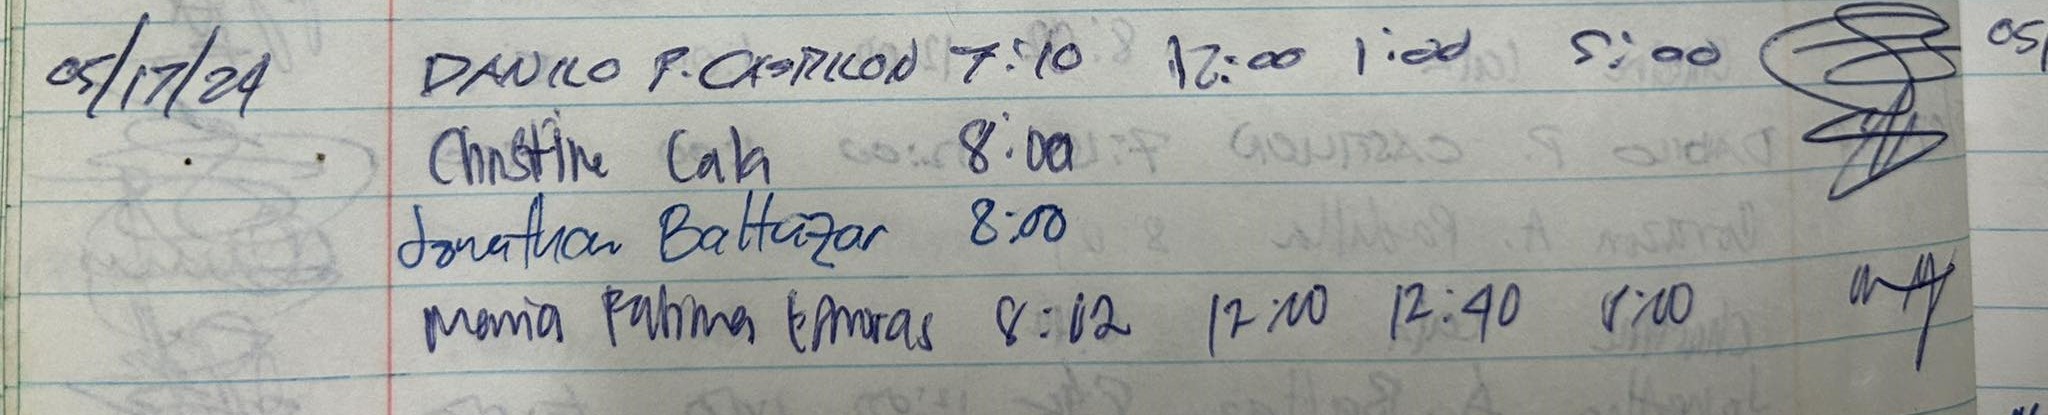 05/17/24 DANILO P. CASTILLON 7:10 12:00 1:00 5:00 05/
Christine Cala 8:00
Jonathan Baltazar 8:00
Maria Fatima 8:12 12:00 12:40 5:00